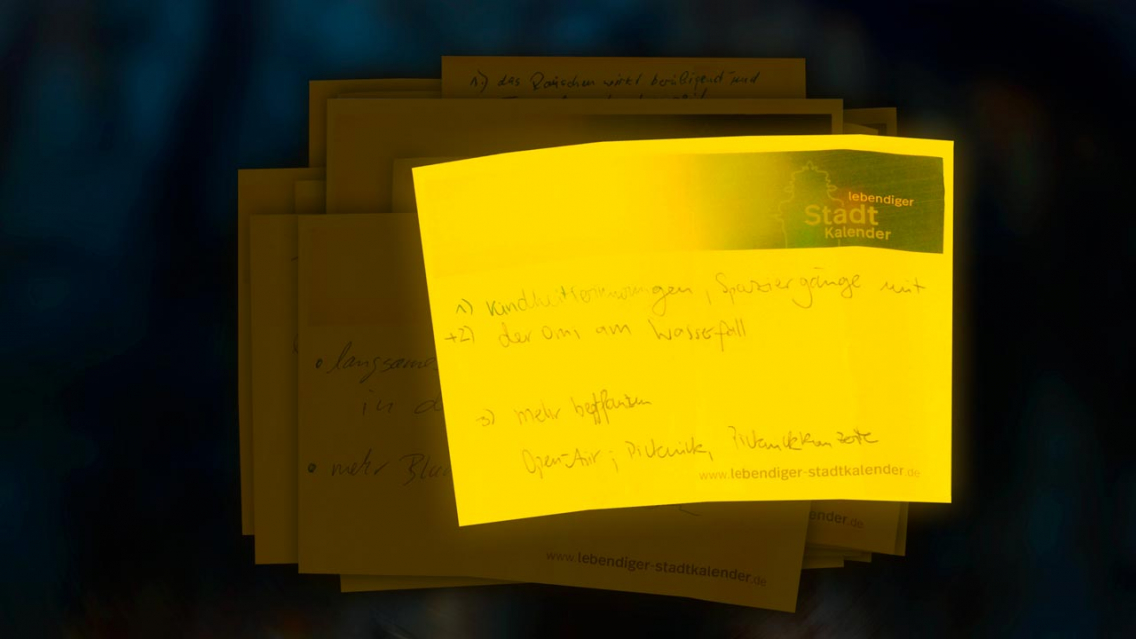 1.) das Rauschen wirkt beruhigend und
lebendiger
Stadt
Kalender
1) Kindheitserinnerungen, Spaziergänge mit
+2) der Omi am Wasserfall
3) mehr bepflanzen
Open-Air; Picknick, Picknickkonzerte
www.lebendiger-stadtkalender.de
• langsame
in d
• mehr Blu
ender.de
www.lebendiger-stadtkalender.de